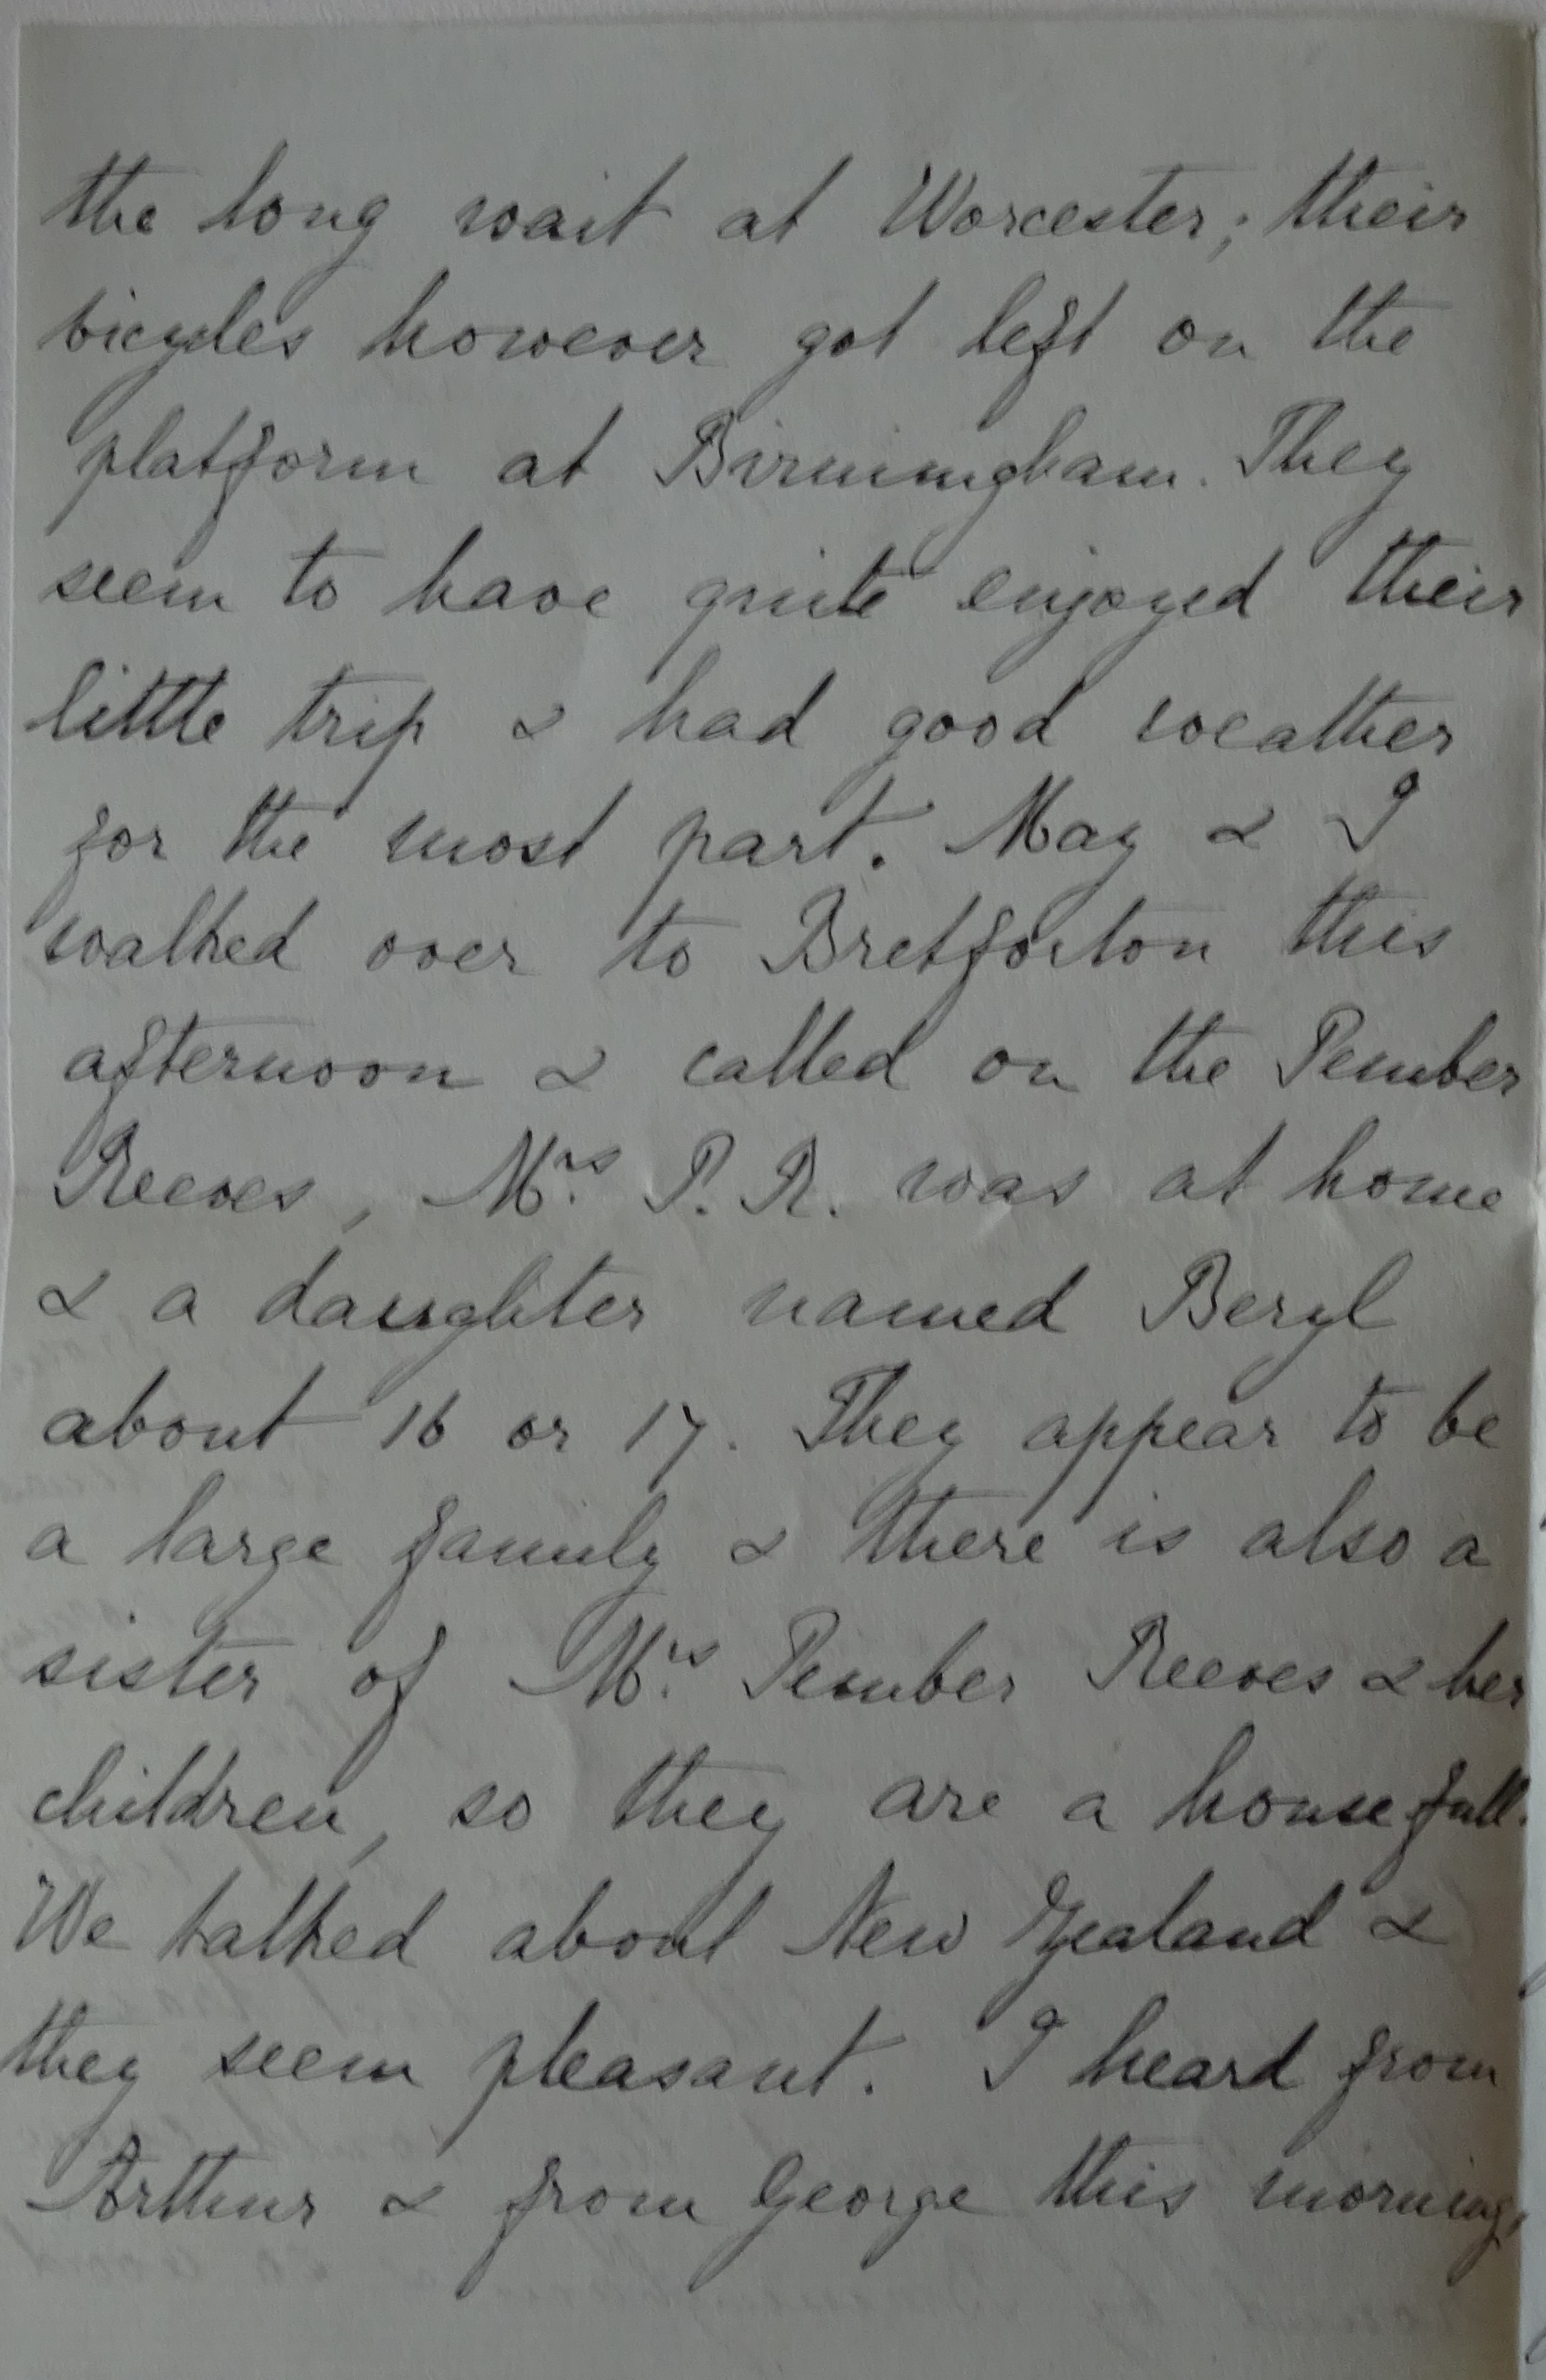 the long wait at Worcester; their
bicycles however got left on the
platform at Birmingham. They
seem to have quite enjoyed their
little trip & had good weather
for the most part. May & I
walked over to Bretforton this
afternoon & called on the Pember
Reeves, Mrs. P. R. was at home
& a daughter named Beryl
about 16 or 17. They appear to be
a large family & there is also a
sister of Mrs. Pember Reeves & her
children, so they are a house full.
We talked about New Zealand &
they seem pleasant. I heard from
Arthur & from George this morning,